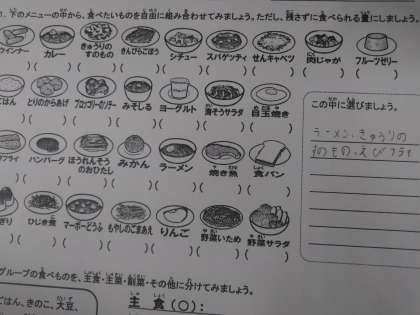 1. 下のメニューの中から、食べたいものを自由に組み合わせてみましょう。ただし、残さずに食べられる量にしましょう。
ウインナー カレー きゅうりのすのもの きんぴらごぼう シチュー スパゲッティ せんキャベツ 肉じゃが フルーツゼリー
ごはん とりのからあげ ブロッコリーのソテー みそしる ヨーグルト 海そうサラダ 目玉焼き
フライ ハンバーグ ほうれんそうのおひたし みかん ラーメン 焼き魚 食パン
ぎり ひじき煮 マーボーどうふ もやしのごまあえ りんご 野菜いため 野菜サラダ
この中に選びましょう。
ラーメン・きゅうりの
すのもの・えびフライ
グループの食べものを、主食・主菜・副菜・その他に分けてみましょう。
ごはん、きのこ、大豆、
主食(○):